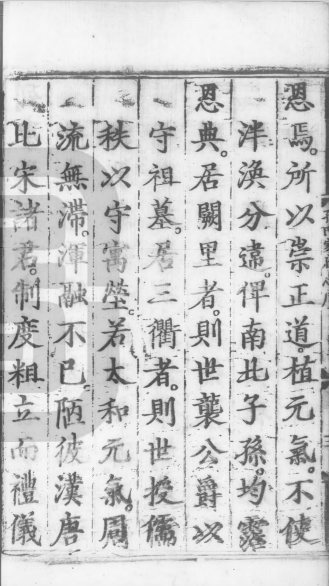 恩焉。所以崇正道。植元氣。不使
泮渙分違。俾南北子孫。均霑
恩典。居闕里者。則世襲公爵。以
守祖墓。居三衢者。則世授儒
秩。以守寓塋。若太和元氣。周
流無滯。渾融不已。陋彼漢唐
比宋諸君。制度粗立。而禮儀